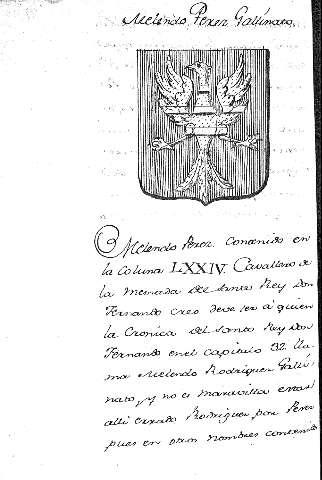 Melendo Perez Gallinato.
Melendo Perez. Contenido en
la Coluna LXXIV. Cavallero de
la Mesnada del santo Rey Don
Fernando creo deve ser à quien
la Cronica del santo Rey Don
Fernando en el capitulo 32 lla
ma Melendo Rodriguez Galli
nato, y no es maravilla estar
alli errado Rodriguez por Perez
pues en otros nombres contenido